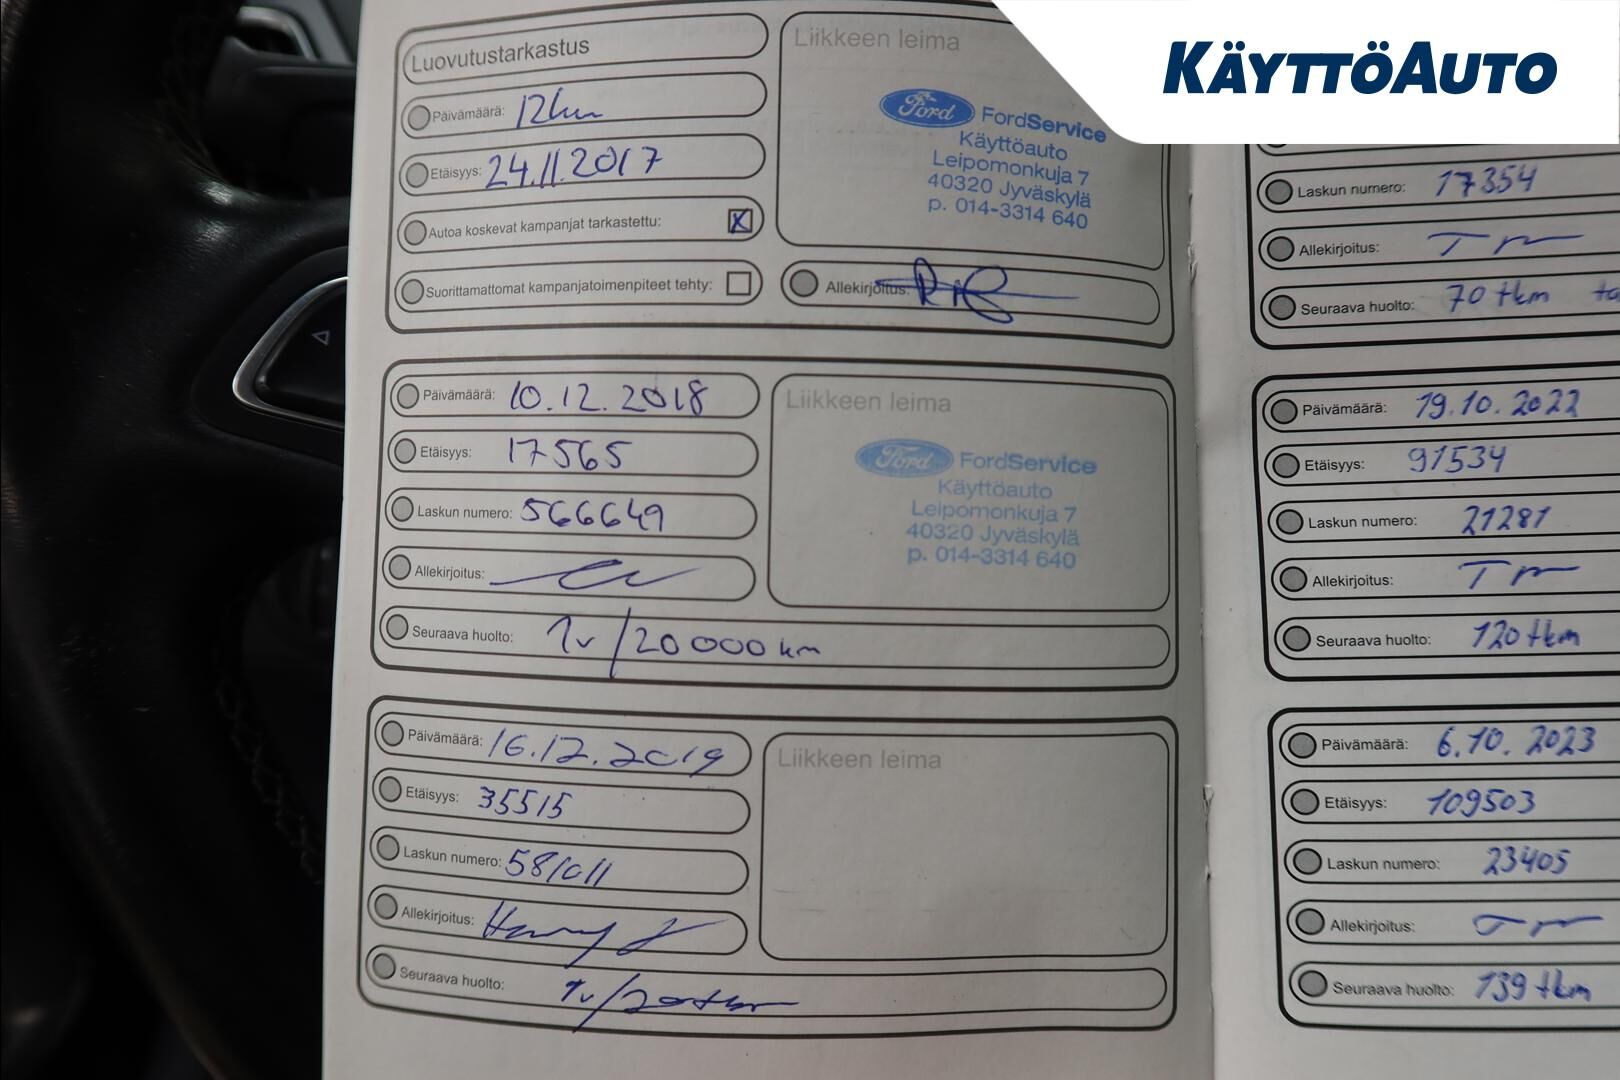 KÄYTTÖAUTO
Luovutustarkastus
Päivämäärä: 12km
Etäisyys: 24.11.2017
Autoa koskevat kampanjat tarkastettu: X
Suorittamattomat kampanjatoimenpiteet tehty:
Liikkeen leima
Ford FordService
Käyttöauto
Leipomonkuja 7
40320 Jyväskylä
p. 014-3314 640
Allekirjoitus:
Päivämäärä: 10.12.2018
Etäisyys: 17565
Laskun numero: 566649
Allekirjoitus:
Seuraava huolto: 1v/20000 km
Liikkeen leima
Ford FordService
Käyttöauto
Leipomonkuja 7
40320 Jyväskylä
p. 014-3314 640
Päivämäärä: 16.12.2019
Etäisyys: 35515
Laskun numero: 581011
Allekirjoitus:
Seuraava huolto: 1v/20tkm
Liikkeen leima
Laskun numero: 17354
Allekirjoitus:
Seuraava huolto: 70 tkm
Päivämäärä: 19.10.2022
Etäisyys: 91534
Laskun numero: 21281
Allekirjoitus:
Seuraava huolto: 120 tkm
Päivämäärä: 6.10.2023
Etäisyys: 109503
Laskun numero: 23405
Allekirjoitus:
Seuraava huolto: 139 tkm